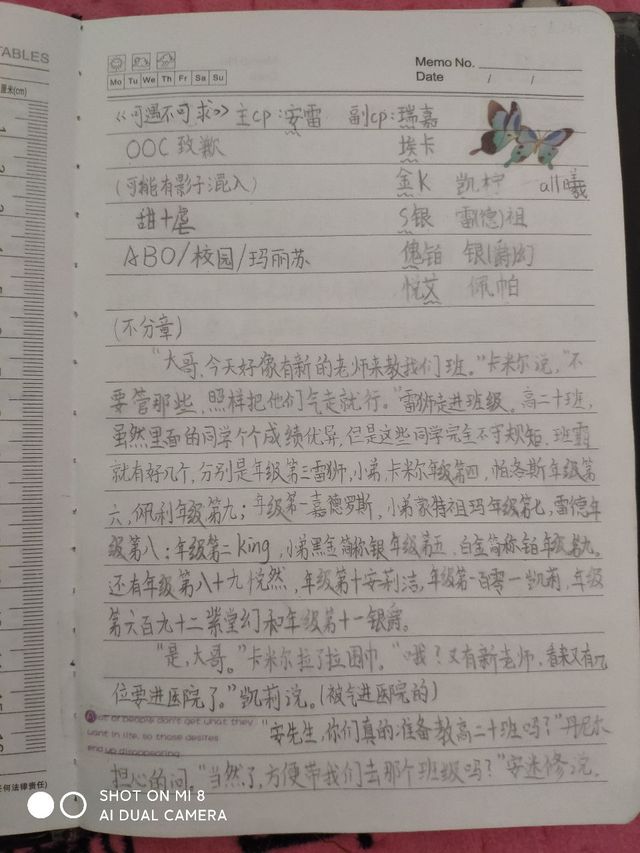 TABLES
Memo No.
Mo Tu We Th Fr Sa Su
Date / /
厘米(cm)
《可遇不可求》主cp:安雷 副cp:瑞嘉
OOC致歉 埃卡
(可能有影子混入) 金K 凯柠 all曦
甜+虐 S银 雷德)祖
ABO/校园/玛丽苏 傀铂 银(爵)幻
悦艾 佩帕
(不分章)
"大哥,今天好像有新的老师来教我们班。"卡米尔说,"不
要管那些,照样把他们气走就行。"雷狮走进班级。高二十班,
虽然里面的同学个个成绩优异,但是这些同学完全不守规矩,班霸
就有好几个,分别是年级第三雷狮,小弟,卡米尔年级第四,帕洛斯年级第
六,佩利年级第九;年级第一嘉德罗斯,小弟蒙特祖玛年级第七,雷德年
级第八;年级第二King,小弟黑金简称银年级第五,白金简称铂年级第九。
还有年级第八十九悦然,年级第十安莉洁,年级第一百零一凯莉,年级
第六百九十二紫堂幻和年级第十一银爵。
"是,大哥。"卡米尔拉了拉围巾。"哦?又有新老师,看来又有几
位要进医院了。"凯莉说。(被气进医院的)
A lot of people don't get what they
want in life, so those desires
end up disappearing
"安先生,你们真的准备教高二十班吗?"丹尼尔
担心的问。"当然了,方便带我们去那个班级吗?"安迷修说。
任何法律责任)
SHOT ON MI 8
AI DUAL CAMERA